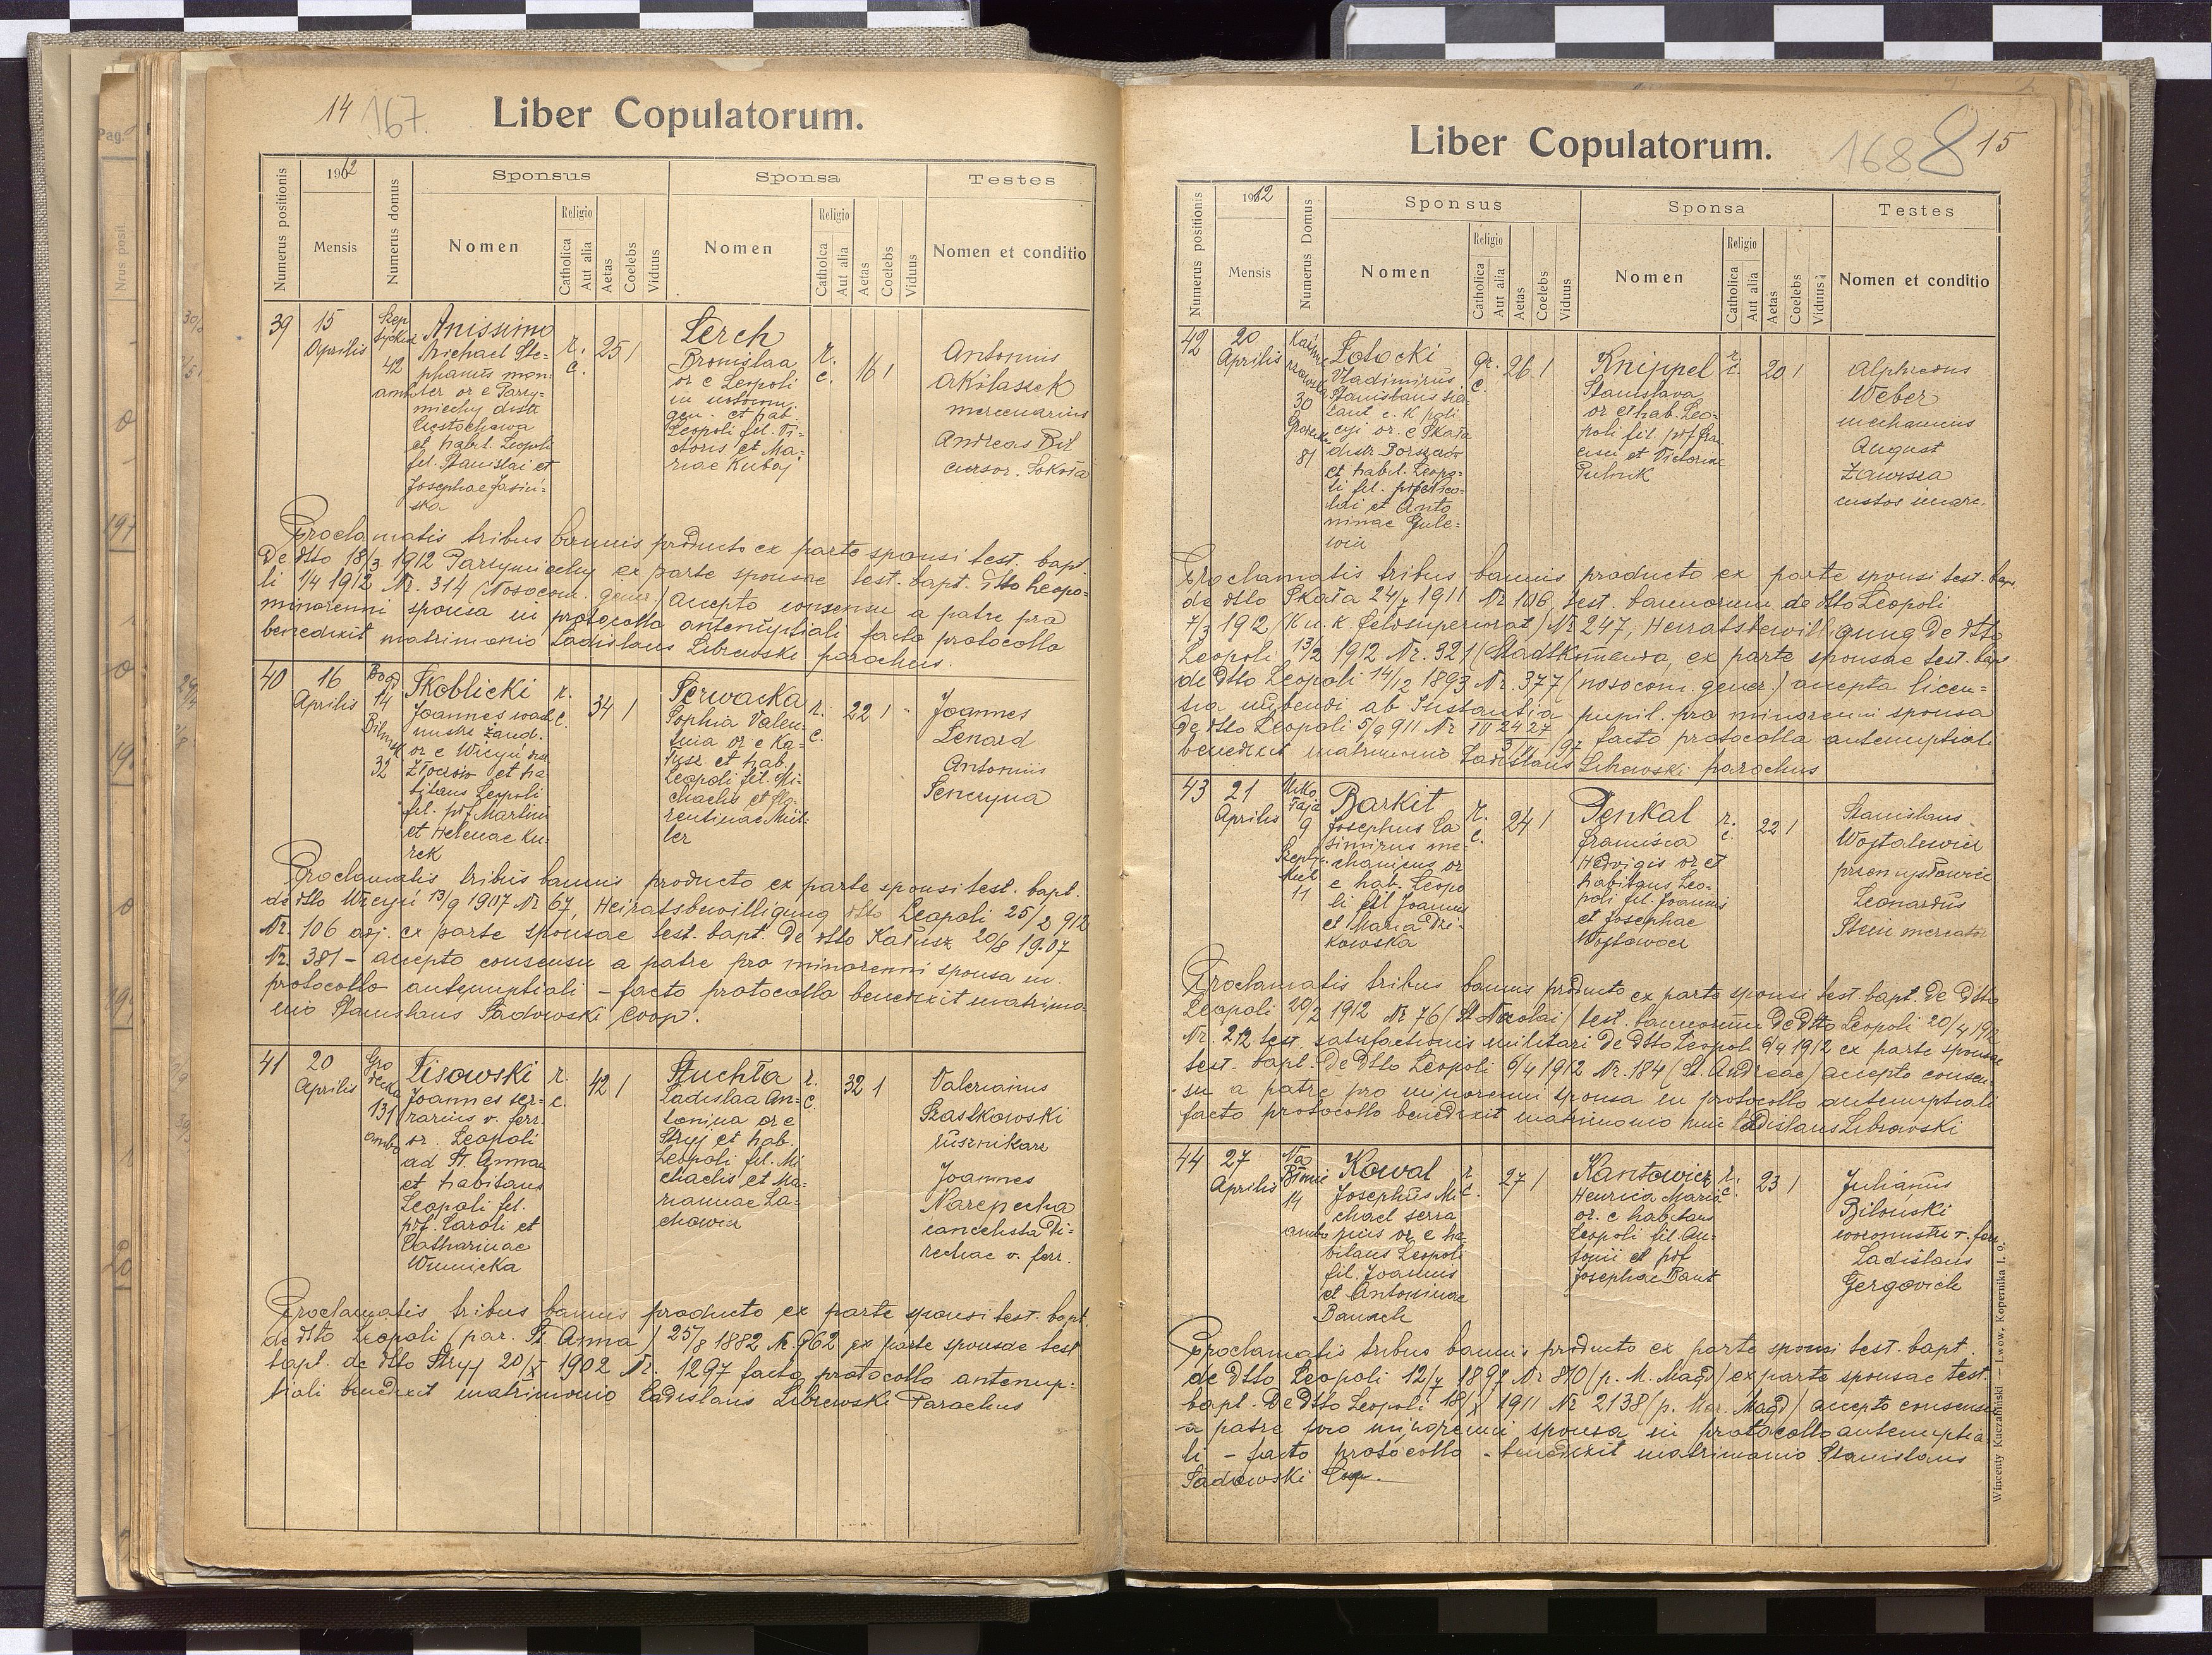 14 167.
Liber Copulatorum.
Numerus positionis
1912
Mensis
Numerus domus
Sponsus
Nomen
Religio
Catholica
Aut alia
Aetas
Coelebs
Viduus
Sponsa
Nomen
Religio
Catholica
Aut alia
Aetas
Coelebs
Viduus
Testes
Nomen et conditio
39
15
Aprilis
42
Anissimo
Michael Ste-
phanus
et habit. Leopoli
fil. Stanislai et
Josephae Jasiń-
ska
r.
c.
25 1
Lerch
Bronislaa
or e Leopoli
gen. et hab.
Leopoli fil. Vi-
ctoris et Ma-
riae Kubaj
r.
c.
16 1
Antonius
Mikolaszek
mercenarius
Andreas Bil
cursor. Sokoła
Proclamatis tribus bannis producto ex parte sponsi test. bapt.
de dtto 18/3 1912 Parzymiechy ex parte sponsae test. bapt. dtto Leopo-
li 1/4 1912 Nr. 314 (Nosocom. gener.) accepto consensu a patre pro
minorenni sponsa in protocollo antenuptiali facto protocollo
benedixit matrimonio Ladislaus Librewski parochus.
40
16
Aprilis
14
32
Skoblicki
Joannes
or e Wicyń
Złoczów et ha
bitans Leopoli
fil. pdf Martini
et Helenae Ku-
rek
r.
c.
34 1
Perwacka
Sophia Valen-
tinia or e Ka-
łusz et hab.
Leopoli fil. Mi-
chaelis et Flo-
rentinae Mül-
ler
r.
c.
22 1
Joannes
Lenard
Antonius
Seneryna
Proclamatis tribus bannis producto ex parte sponsi test. bapt.
de dtto Wicyń 13/9 1907 Nr 67, Heiratsbewilligung dtto Leopoli 25/2 912
Nr. 106 adj. ex parte sponsae test. bapt. de dtto Kałusz 20/8 1907
Nr. 381 - accepto consensu a patre pro minorenni sponsa in
protocollo antenuptiali - facto protocollo benedixit matrimo-
nio Stanislaus Sadowski Coop.
41
20
Aprilis
Gro
decka
131
ambo
Lisowski
Joannes ser-
rarius v. ferr.
or. Leopoli
ad St. Annam
et habitans
Leopoli fil.
pdf. Caroli et
Catharinae
Winnicka
r.
c.
42 1
Stuchła
Ladislaa An-
tonina or e
Stryj et hab.
Leopoli fil. Mi
chaelis et Ma-
riannae La-
chowicz
r.
c.
32 1
Valerianus
Szastkowski
rusznikarz
Joannes
Narepecha
cancelista Di-
rectiae v. ferr.
Proclamatis tribus bannis producto ex parte sponsi test. bapt.
de dtto Leopoli (par. St Anna) 25/8 1882 Nr. 862 ex parte sponsae test
bapt. de dtto Stryj 20/X 1902 Nr. 1297 facto protocollo antenup-
tiali benedixit matrimonio Ladislaus Librewski Parochus
Liber Copulatorum.
168 8 15
Numerus positionis
1912
Mensis
Numerus Domus
Sponsus
Nomen
Religio
Catholica
Aut alia
Aetas
Coelebs
Viduus
Sponsa
Nomen
Religio
Catholica
Aut alia
Aetas
Coelebs
Viduus
Testes
Nomen et conditio
42
20
Aprilis
30
81
Potocki
Vladimirus
Stanislaus
c. K poli
cyi or. e Skała
distr Borszczów
et habit. Leopo-
li fil.
et Anto
ninae Gule-
wicz
gr.
c.
26 1
Knippel
Stanislava
or et hab. Leo-
poli fil. pdf Fra-
cisci et Victoriae
Pulnik
r.
c.
20 1
Alphredus
Weber
mechanicus
August
Zawsza
custos
Proclamatis tribus bannis producto ex parte sponsi test. bapt
de dtto Skała 24/7 1911 Nr 106, test. bannorum de dtto Leopoli
7/3 1912 (K u. k. Feldsuperiorat) Nr 247, Heiratsbewilligung de dtto
Leopoli 13/2 1912 Nr. 321 ex parte sponsae test. bapt
de dtto Leopoli 14/12 1893 Nr. 377 (nosocom. gener.) accepta licen-
tia nubendi ab Instantia pupil. pro minorenni sponsa
de dtto Leopoli 5/9 911 facto protocollo antenuptiali
benedixit matrimonio Ladislaus Librewski parochus
43
21
Aprilis
9
11
Barkit
Josephus Ca
simirus me-
chanicus or
e hab. Leopo
li fil Joannis
et Maria Dzi-
kowska
r.
c.
24 1
Penkal
Francisca
Hedvigis or et
habitans Leo-
poli fil. Joannis
et Josephae
Wojtowicz
r.
c.
22 1
Stanislaus
Wojtalewicz
przemysłowiec
Leonardus
Stein mercator
Proclamatis tribus bannis producto ex parte sponsi test. bapt. de dtto
Leopoli 20/2 1912 Nr 76 (St Nicolai) test. bannorum de dtto Leopoli 20/4 1912
Nr. 212 test. satisfactionis militari de dtto Leopoli 6/4 1912 ex parte sponsae
test. bapt. de dtto Leopoli 6/4 1912 Nr. 184 (St. Andreae) accepto consen-
su a patre pro minorenni sponsa in protocollo antenuptiali
facto protocollo benedixit matrimonio Ladislaus Librewski
44
27
Aprilis
Na
Błonie
14
ambo
Kowal
Josephus Mi
chael serra
rius or e ha-
bitans Leopoli
fil. Joannis
et Antoninae
Banach
r.
c.
27 1
Kantowicz
Henrica Maria
or. e habitans
Leopoli fil An-
tonii et pdf
Josephae Bant
r.
c.
23 1
Julianus
Biłouski
Ladislaus
Gergovich
Proclamatis tribus bannis producto ex parte sponsi test. bapt.
de dtto Leopoli 12/7 1897 Nr 810 (p. M. Magd) ex parte sponsae test.
bapt. de dtto Leopoli 18/X 1911 Nr 2138 (p. Mar. Magd) accepto consensu
a patre pro minorenni sponsa in protocollo antenuptia
li - facto protocollo - benedixit matrimonio Stanislaus
Sadowski Coop.
Wincenty Kuczabiński — Lwów, Kopernika l. 9.